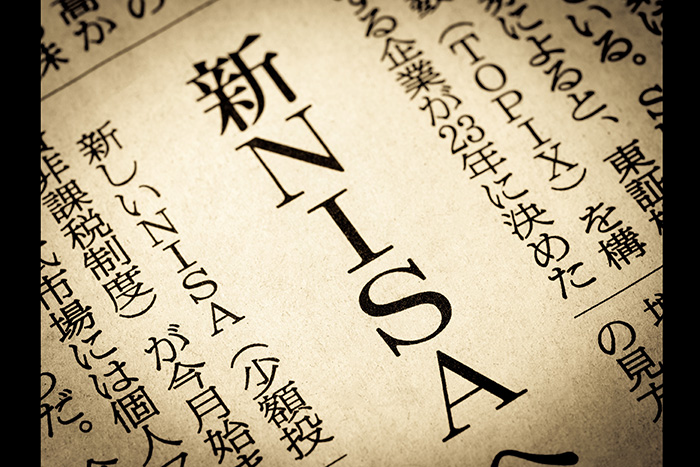 いる。S
によると、東証
(TOPIX)を構
する企業が23年に決めた
の見方
新NISA
の
高か
味
新しいNISA(少額投
非課税制度)が今月始ま
市場には個人
だ。